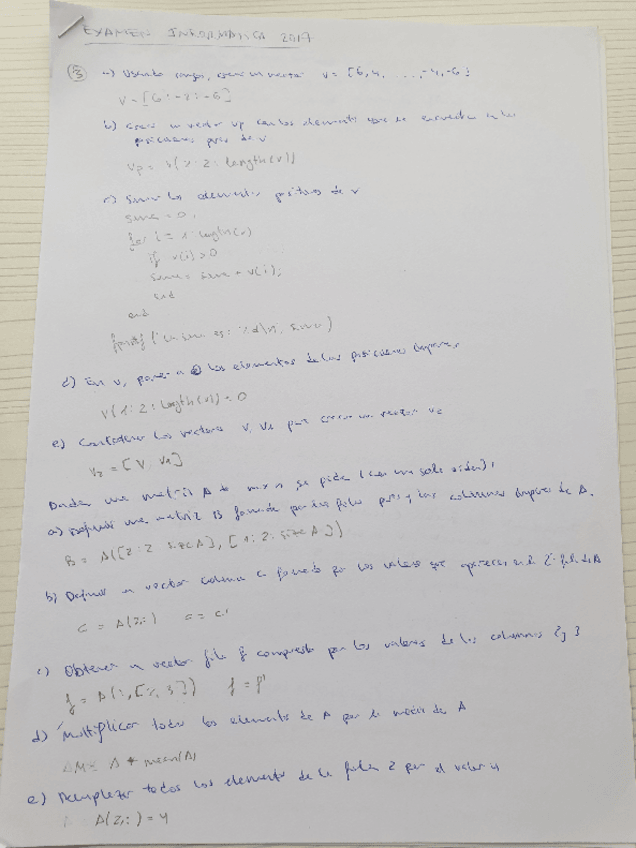 EXAMEN INFORMATICA 2017
③ a) Usando rango, crear un vector v = [6,4, ..., -4,-6]
v = [6:-2:-6]
b) crear un vector vp con los elementos que se encuentra en las
posiciones pares de v
vp = v(2:2:length(v))
c) Sumar los elementos positivos de v
suma = 0;
for i = 1:length(v)
if v(i)>0
suma = suma + v(i);
end
end
fprintf('La suma es: %d\n', suma)
d) En v, poner a 0 los elementos de las posiciones impares
v(1:2:length(v)) = 0
e) Concatenar los vectores v, v1 para crear un vector v2
v2 = [v v1]
Dada una matriz A de mxn se pide (con una sola orden):
a) Definir una matriz B formada por las filas pares y las columnas impares de A.
B = A([2:2 size A], [1:2:size A])
b) Definir un vector columna c formado por los valores que aparecen en la 2ª fila de A
c = A(2,:) c = c'
c) Obtener un vector fila f compuesto por los valores de las columnas 2 y 3
f = A(:,[2,3]) f = f'
d) Multiplicar todos los elementos de A por la media de A
AM = A * mean(A)
e) Remplezar todos los elementos de la fila 2 por el valor 4
A(2,:) = 4